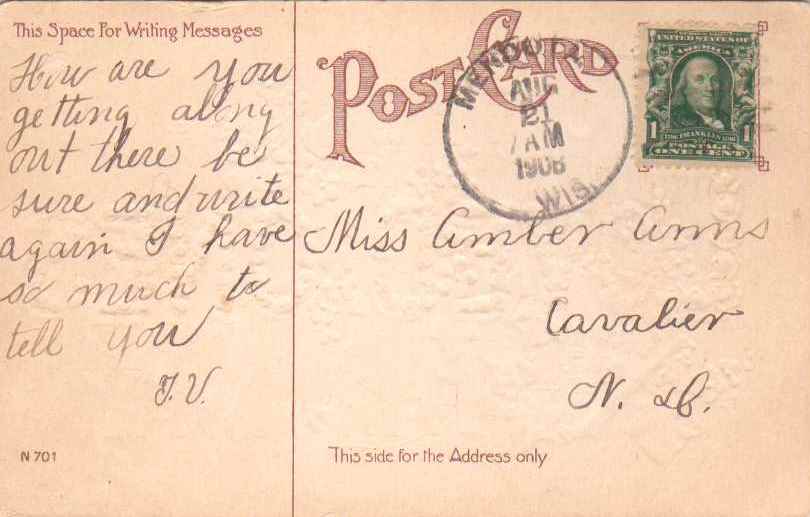 This Space For Writing Messages
How are you
getting along
out there be
sure and write
again I have
so much to
tell you
J.V.
N 701
POST CARD
AUG
21
7 AM
1908
WIS.
UNITED STATES OF
AMERICA
1 1
POSTAGE
ONE CENT
Miss Amber Arms
Cavalier
N. D.
This side for the Address only